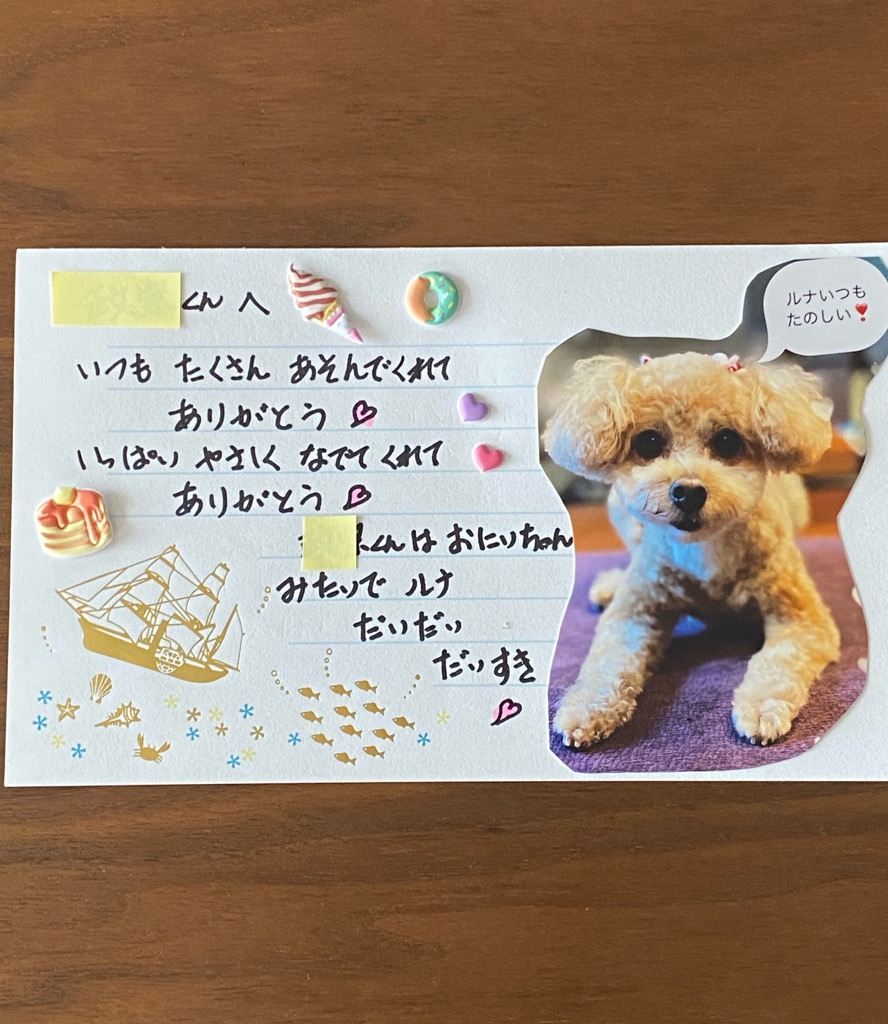 くんへ
いつも たくさん あそんでくれて
ありがとう
いっぱい やさしく なでてくれて
ありがとう
くんは おにいちゃん
みたいで ルナ
だいだい
だいすき
ルナいつも
たのしい❣️